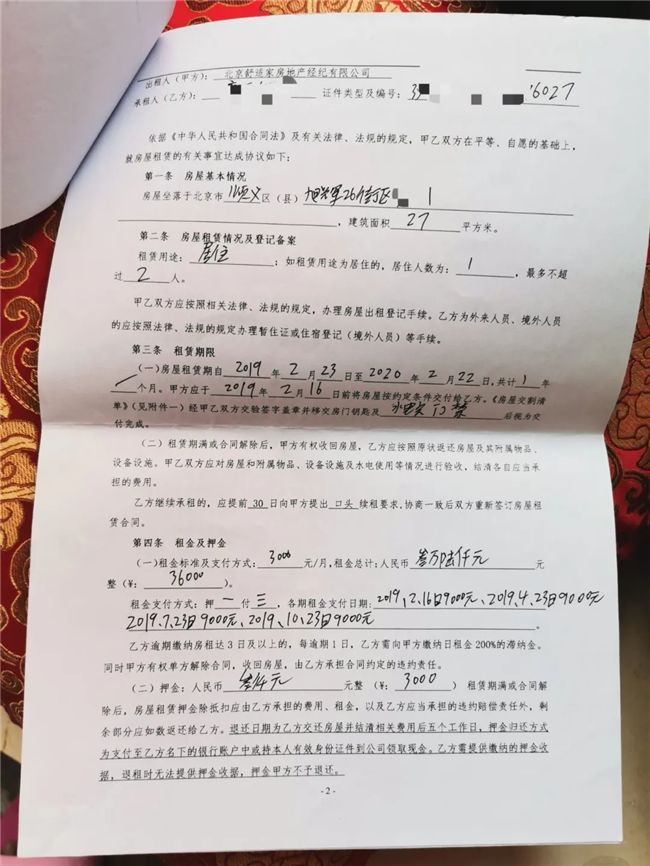 出租人(甲方):北京舒适家房地产经纪有限公司
承租人(乙方): 证件类型及编号: 6027
依据《中华人民共和国合同法》及有关法律、法规的规定,甲乙双方在平等、自愿的基础上,
就房屋租赁的有关事宜达成协议如下:
第一条 房屋基本情况
房屋坐落于北京市 顺义 区(县) 旭辉26街区 1
,建筑面积 27 平方米。
第二条 房屋租赁情况及登记备案
租赁用途: 居住 ;如租赁用途为居住的,居住人数为: 1 ,最多不超
过 2 人。
甲乙双方应按照相关法律、法规的规定,办理房屋出租登记手续。乙方为外来人员、境外人员
的应按照法律、法规的规定办理暂住证或住宿登记(境外人员)等手续。
第三条 租赁期限
(一)房屋租赁期自 2019 年 2 月 23 日至 2020 年 2 月 22 日,共计 1 年
个月。甲方应于 2019 年 2 月 16 日前将房屋按约定条件交付给乙方。《房屋交割清
单》(见附件一)经甲乙双方交验签字盖章并移交房门钥匙及 门禁 后视为交
付完成。
(二)租赁期满或合同解除后,甲方有权收回房屋,乙方应按照原状返还房屋及其附属物品、
设备设施。甲乙双方应对房屋和附属物品、设备设施及水电使用等情况进行验收,结清各自应当承
担的费用。
乙方继续承租的,应提前 30 日向甲方提出 口头 续租要求,协商一致后双方重新签订房屋租
赁合同。
第四条 租金及押金
(一)租金标准及支付方式: 3000 元/月,租金总计:人民币 叁万陆仟元 元
整(¥: 36000 )。
租金支付方式:押 一 付 三 ,各期租金支付日期: 2019,2.16日9000元、2019.4.23日9000元
2019.7.23日9000元、2019、10、23日9000元 。
乙方逾期缴纳房租达3日及以上的,每逾期1日,乙方需向甲方缴纳日租金200%的滞纳金。
同时甲方有权单方解除合同,收回房屋,由乙方承担合同约定的违约责任。
(二)押金:人民币 叁仟元 元整 (¥: 3000 ) 租赁期满或合同解
除后,房屋租赁押金除抵扣应由乙方承担的费用、租金,以及乙方应当承担的违约赔偿责任外,剩
余部分应如数返还给乙方。退还日期为乙方交还房屋并结清相关费用后五个工作日,押金归还方式
为支付至乙方名下的银行账户中或持本人有效身份证件到公司领取现金。乙方需提供缴纳的押金收
据,退租时无法提供押金收据,押金甲方不予退还。
- 2 -